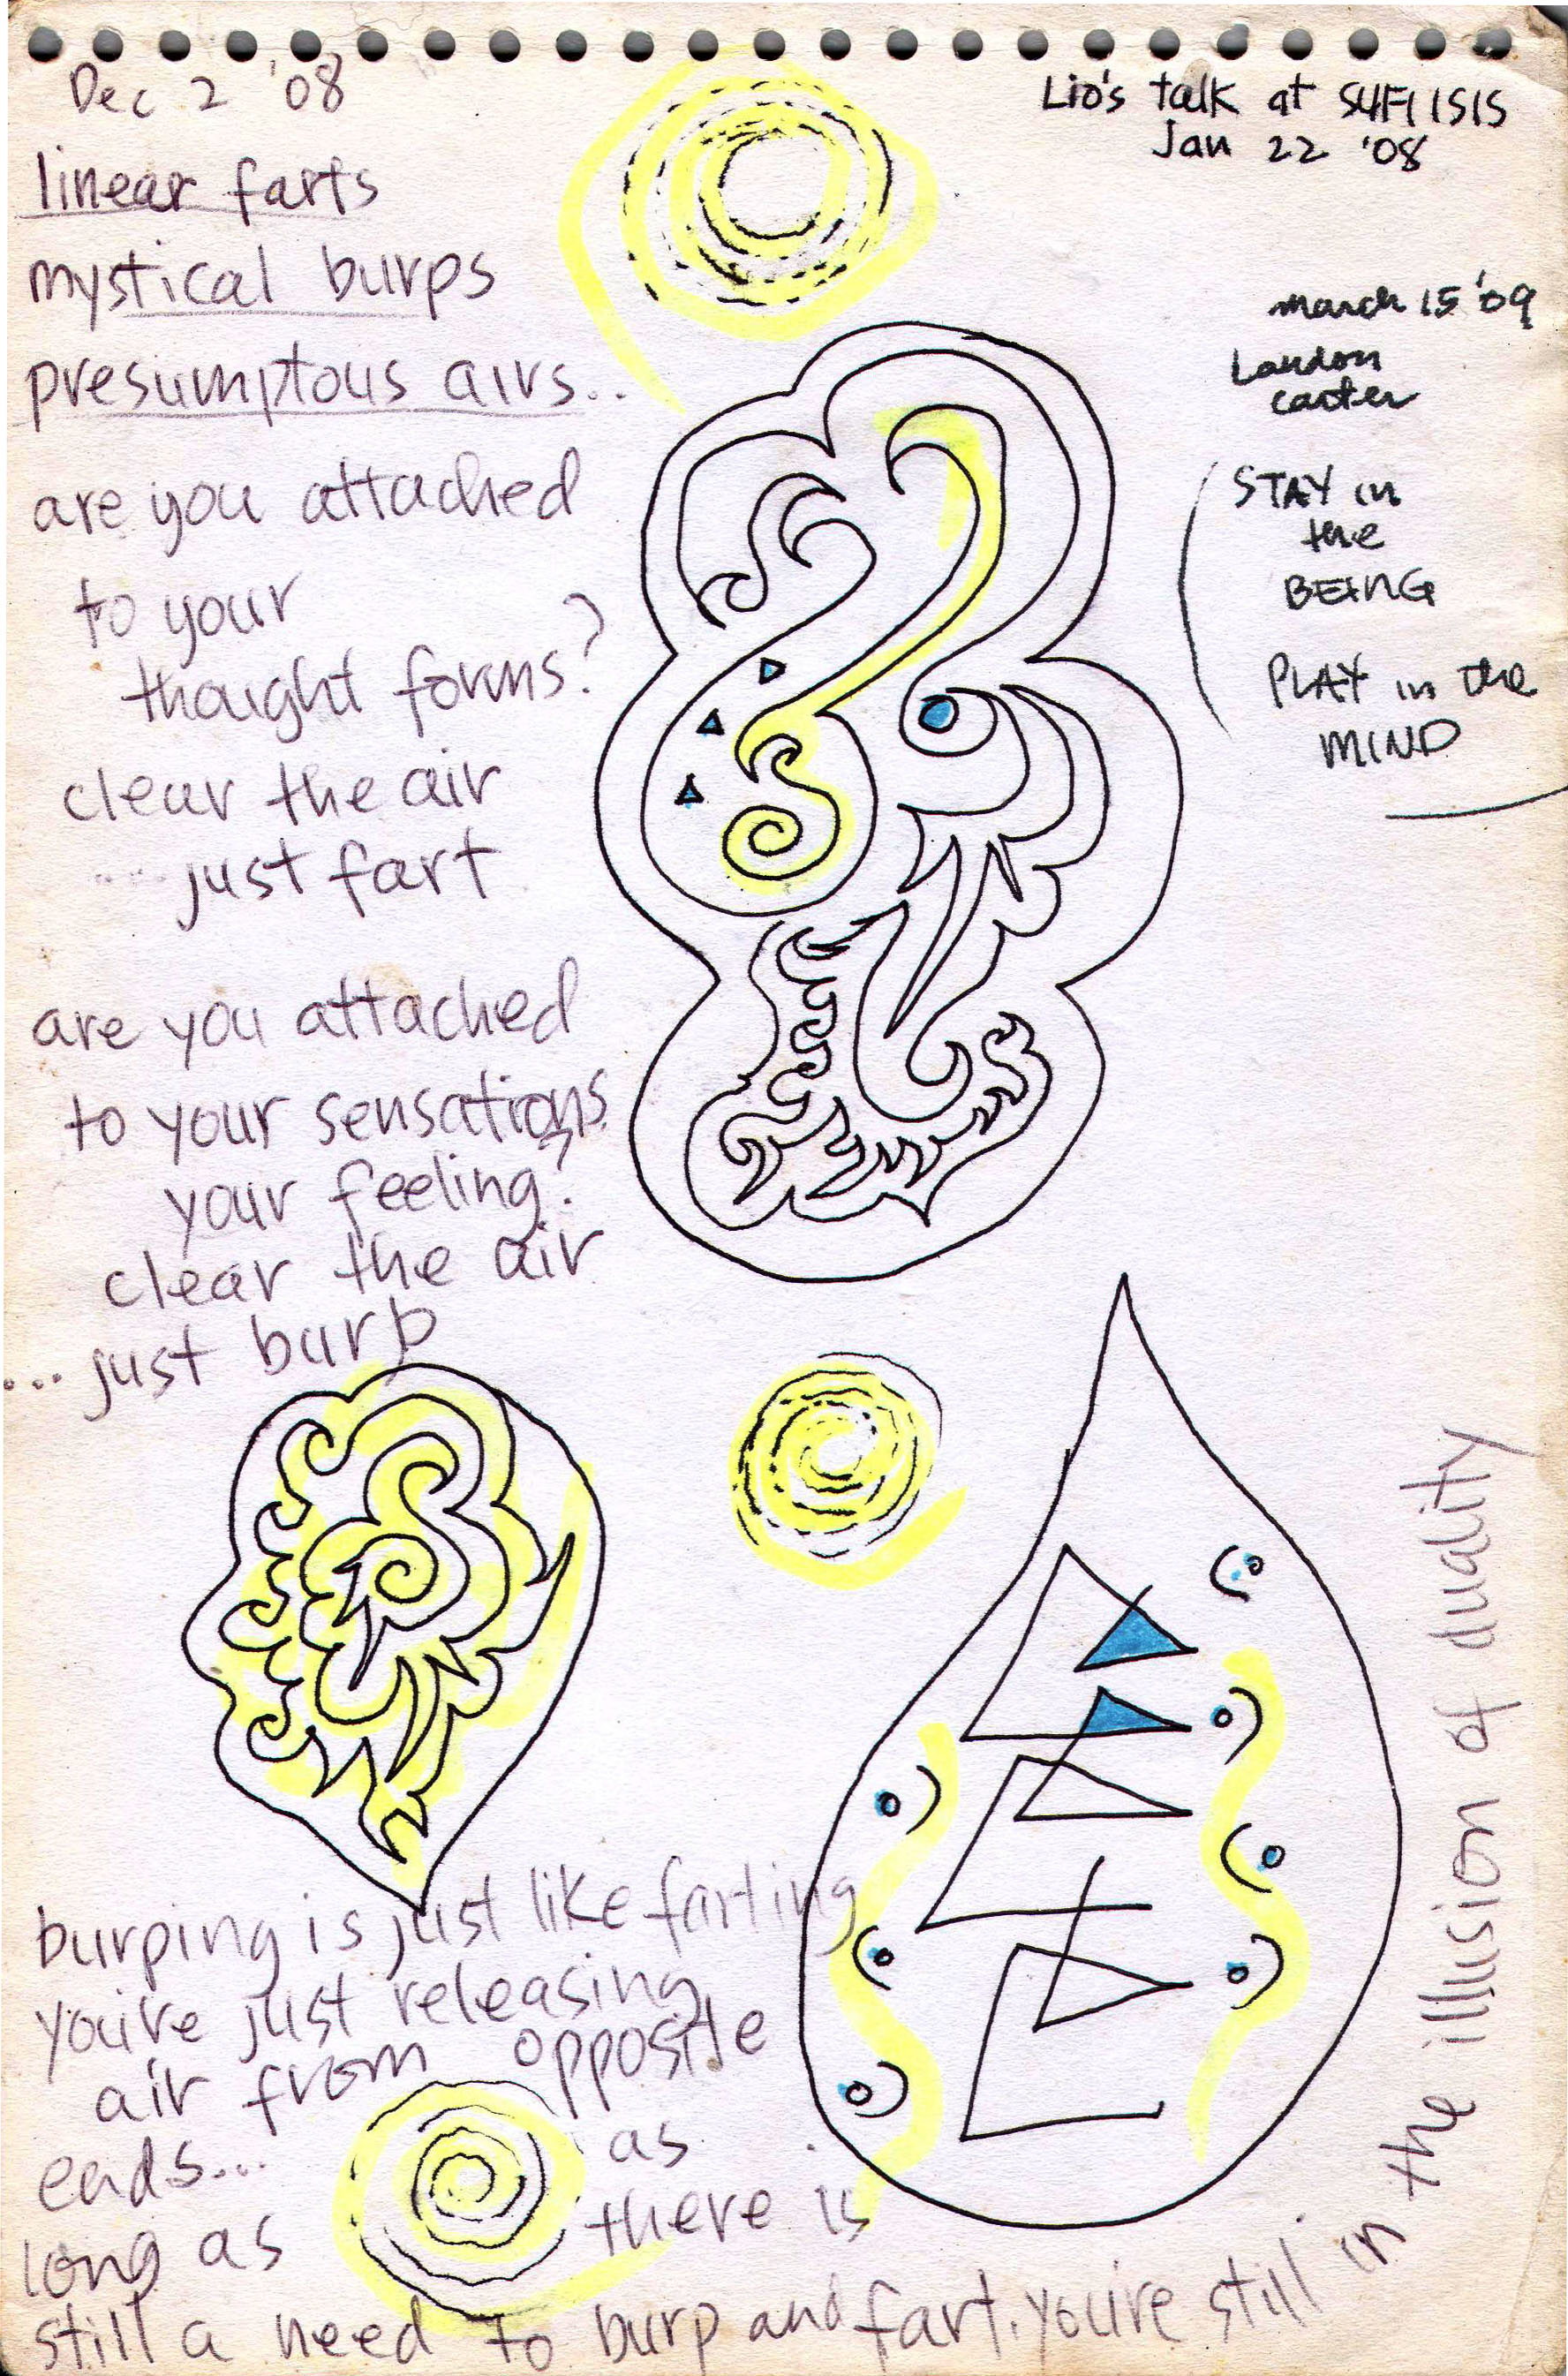 Dec 2 '08
linear farts
mystical burps
presumptous airs..
are you attached
to your
thought forms?
clear the air
... just fart
are you attached
to your sensations
your feeling?
clear the air
... just burp
burping is just like farting
you're just releasing
air from opposite
ends... as
long as there is
still a need to burp and fart. you're still in the illusion of duality
Lio's talk at
Jan 22 '08
march 15 '09
Landon
carter
STAY in
the
BEING
PLAY in the
MIND